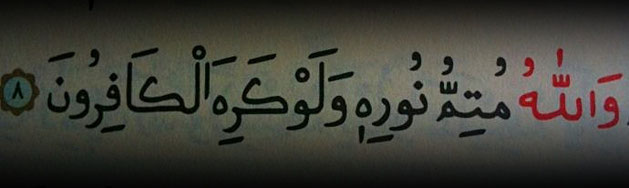 وَاللّٰهُ مُتِمُّ نُورِهِ وَلَوْ كَرِهَ الْكَافِرُونَ ٨